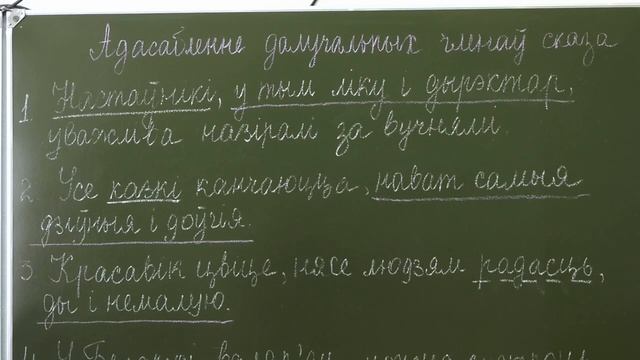 Адасабленне далучальных членаў сказа
1. Настаўнікі, у тым ліку і дырэктар,
уважліва назіралі за вучнямі.
2. Усе казкі канчаюцца, нават самыя
дзіўныя і доўгія.
3 Красавік цвіце, нясе людзям радасць,
ды і немалую.
4. У